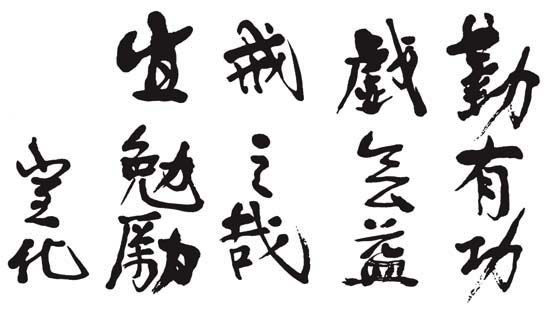 勤有功
戲無益
戒之哉
宜勉勵